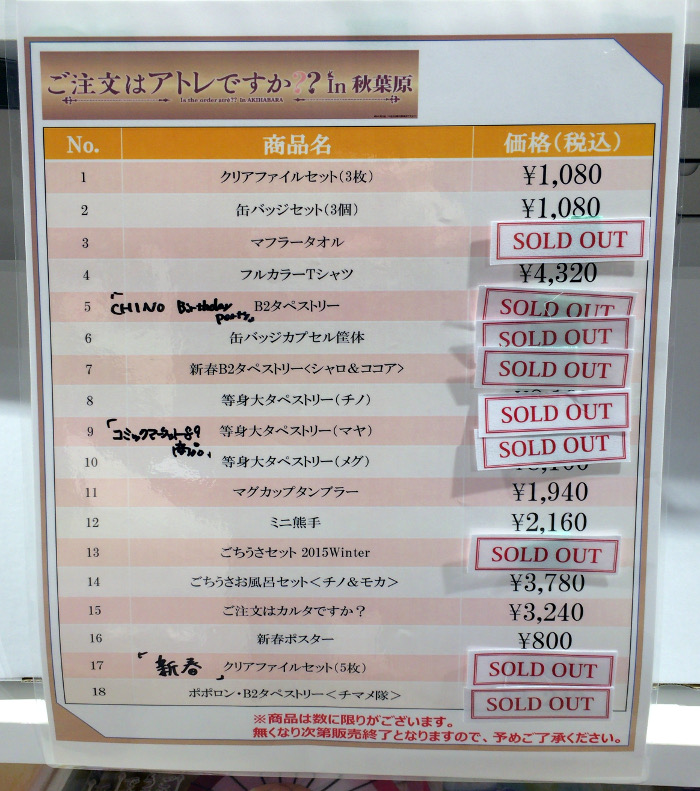 ご注文はアトレですか??In 秋葉原
Is the order atré?? In AKIHABARA
No. 商品名 価格(税込)
1 クリアファイルセット(3枚) ¥1,080
2 缶バッジセット(3個) ¥1,080
3 マフラータオル SOLD OUT
4 フルカラーTシャツ ¥4,320
5 「CHINO Birthday party」 B2タペストリー SOLD OUT
6 缶バッジカプセル筐体 SOLD OUT
7 新春B2タペストリー<シャロ&ココア> SOLD OUT
8 等身大タペストリー(チノ) SOLD OUT
9 「コミックマーケット89 等身大タペストリー(マヤ) SOLD OUT
10 等身大タペストリー(メグ)
11 マグカップタンブラー ¥1,940
12 ミニ熊手 ¥2,160
13 ごちうさセット 2015Winter SOLD OUT
14 ごちうさお風呂セット<チノ&モカ> ¥3,780
15 ご注文はカルタですか? ¥3,240
16 新春ポスター ¥800
17 「新春 クリアファイルセット(5枚) SOLD OUT
18 ポポロン・B2タペストリー<チマメ隊> SOLD OUT
※商品は数に限りがございます。
無くなり次第販売終了となりますので、予めご了承ください。